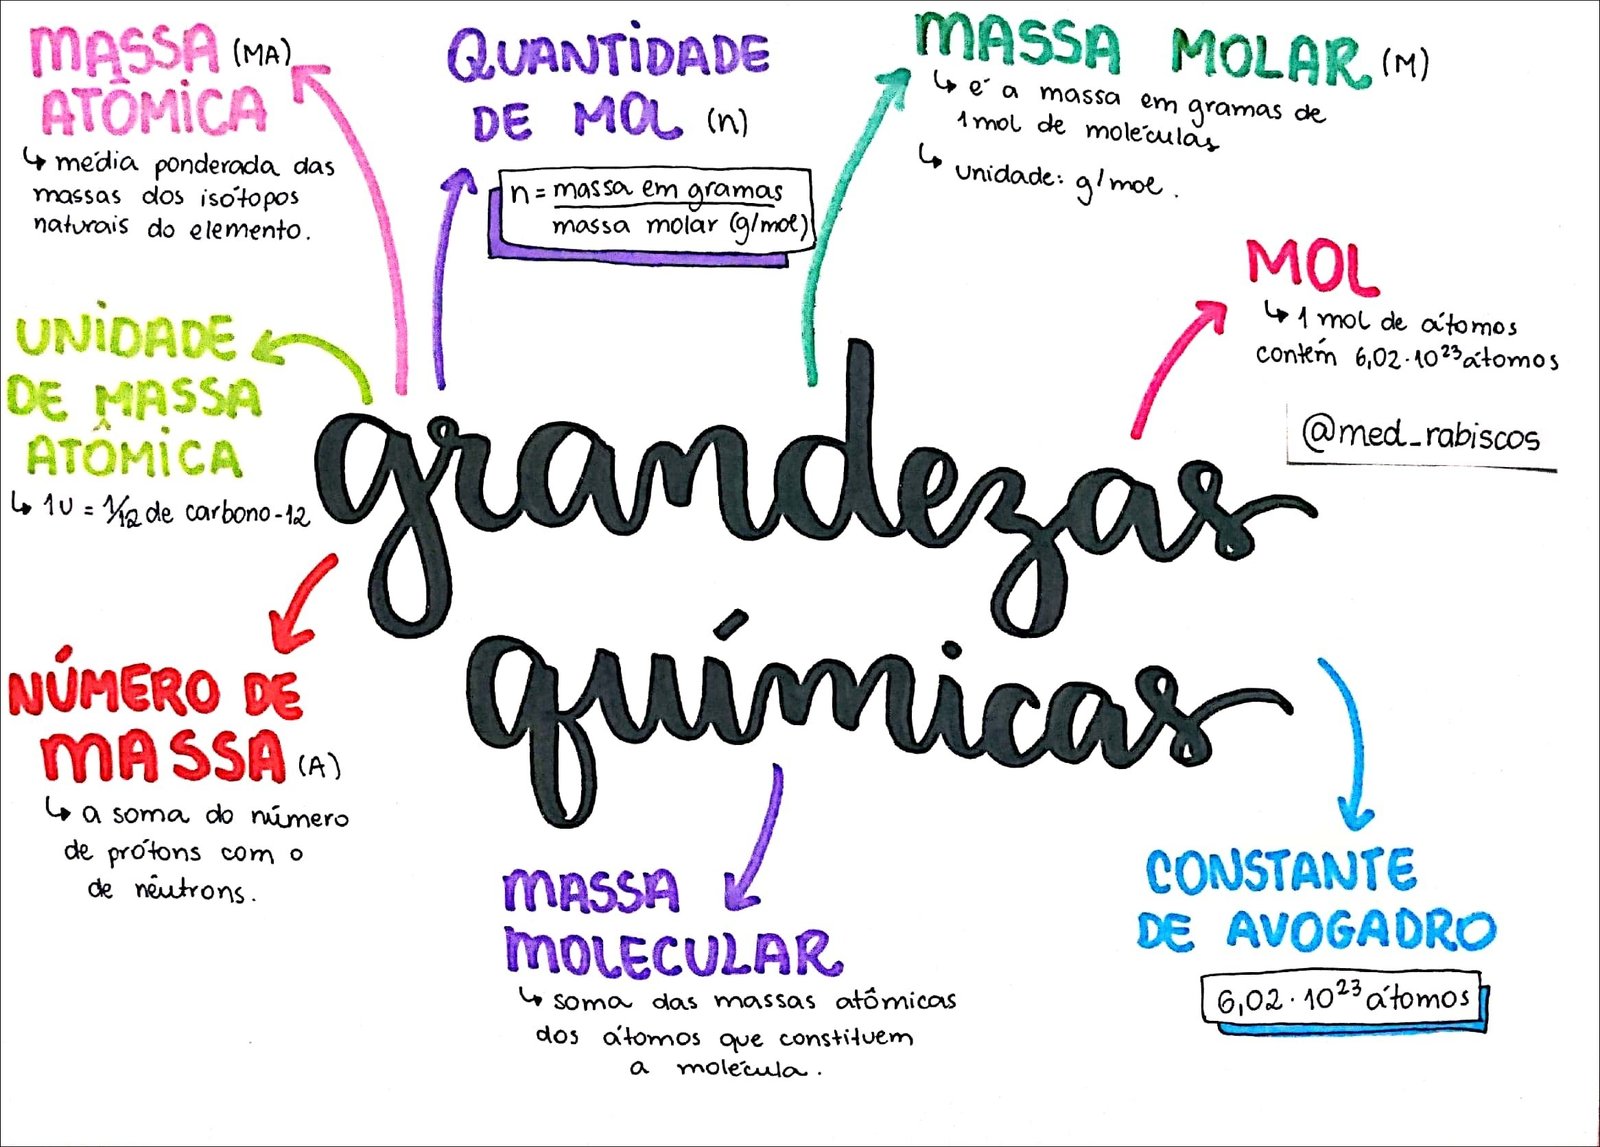 MASSA (MA)
ATÔMICA
↳ média ponderada das
massas dos isótopos
naturais do elemento.
QUANTIDADE
DE MOL (n)
n = massa em gramas
massa molar (g/mol)
MASSA MOLAR (M)
↳ é a massa em gramas de
1 mol de moléculas
↳ unidade: g/mol.
MOL
↳ 1 mol de átomos
contém 6,02 · 10²³ átomos
@med_rabiscos
UNIDADE
DE MASSA
ATÔMICA
↳ 1U = 1/12 de carbono-12
grandezas
químicas
NÚMERO DE
MASSA (A)
↳ a soma do número
de prótons com o
de nêutrons.
MASSA
MOLECULAR
↳ soma das massas atômicas
dos átomos que constituem
a molécula.
CONSTANTE
DE AVOGADRO
6,02 · 10²³ átomos